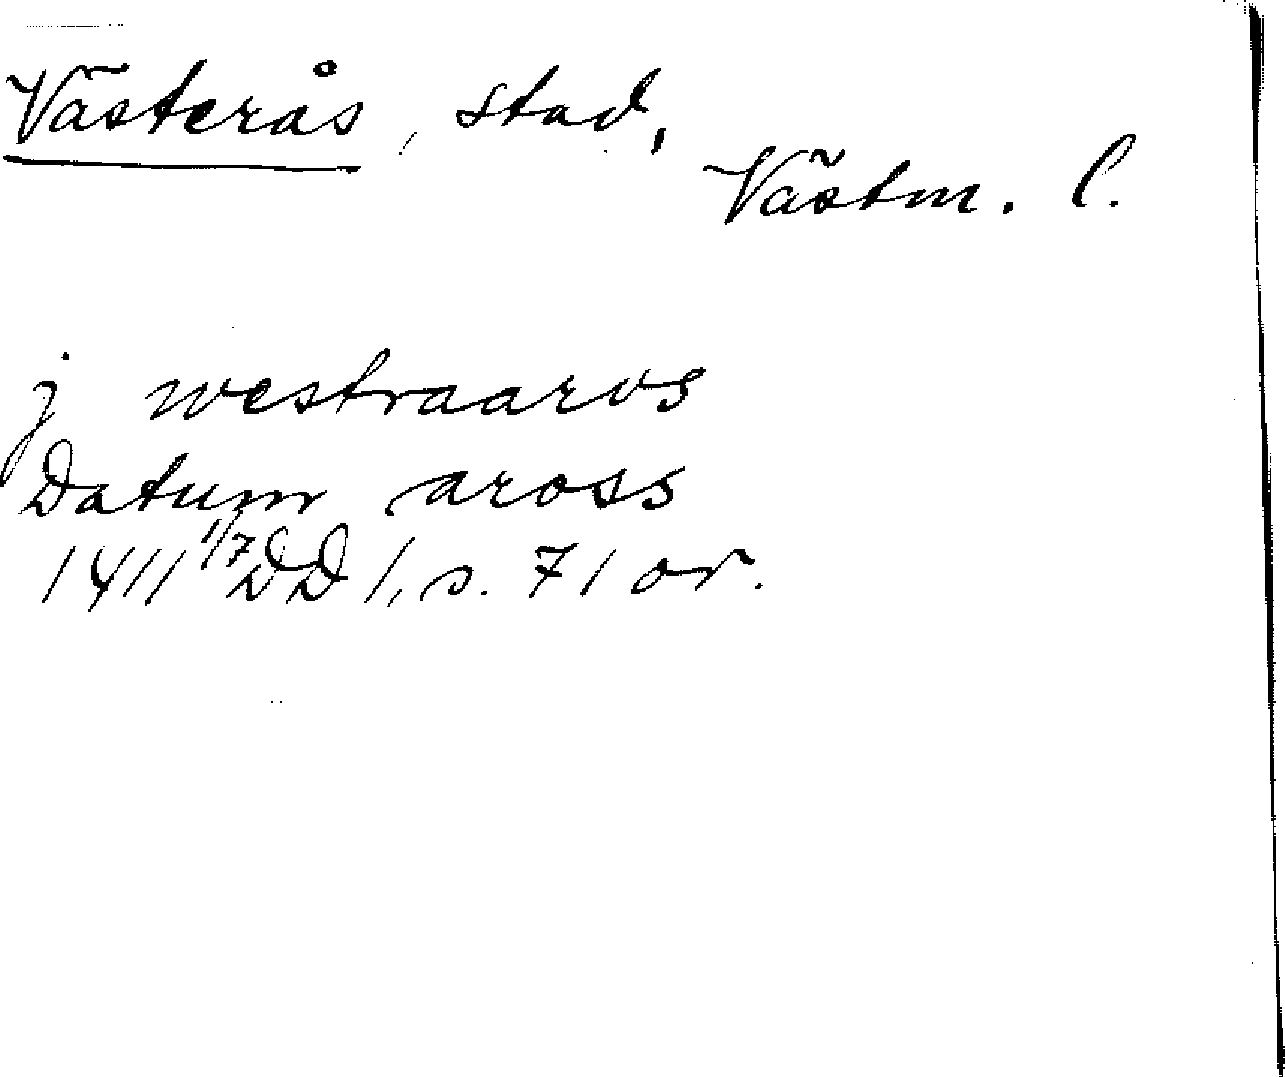 Västerås, stad,
Västm. l.
j westraaros
Datum aross
1411 1/7 DD 1, s. 71 or.